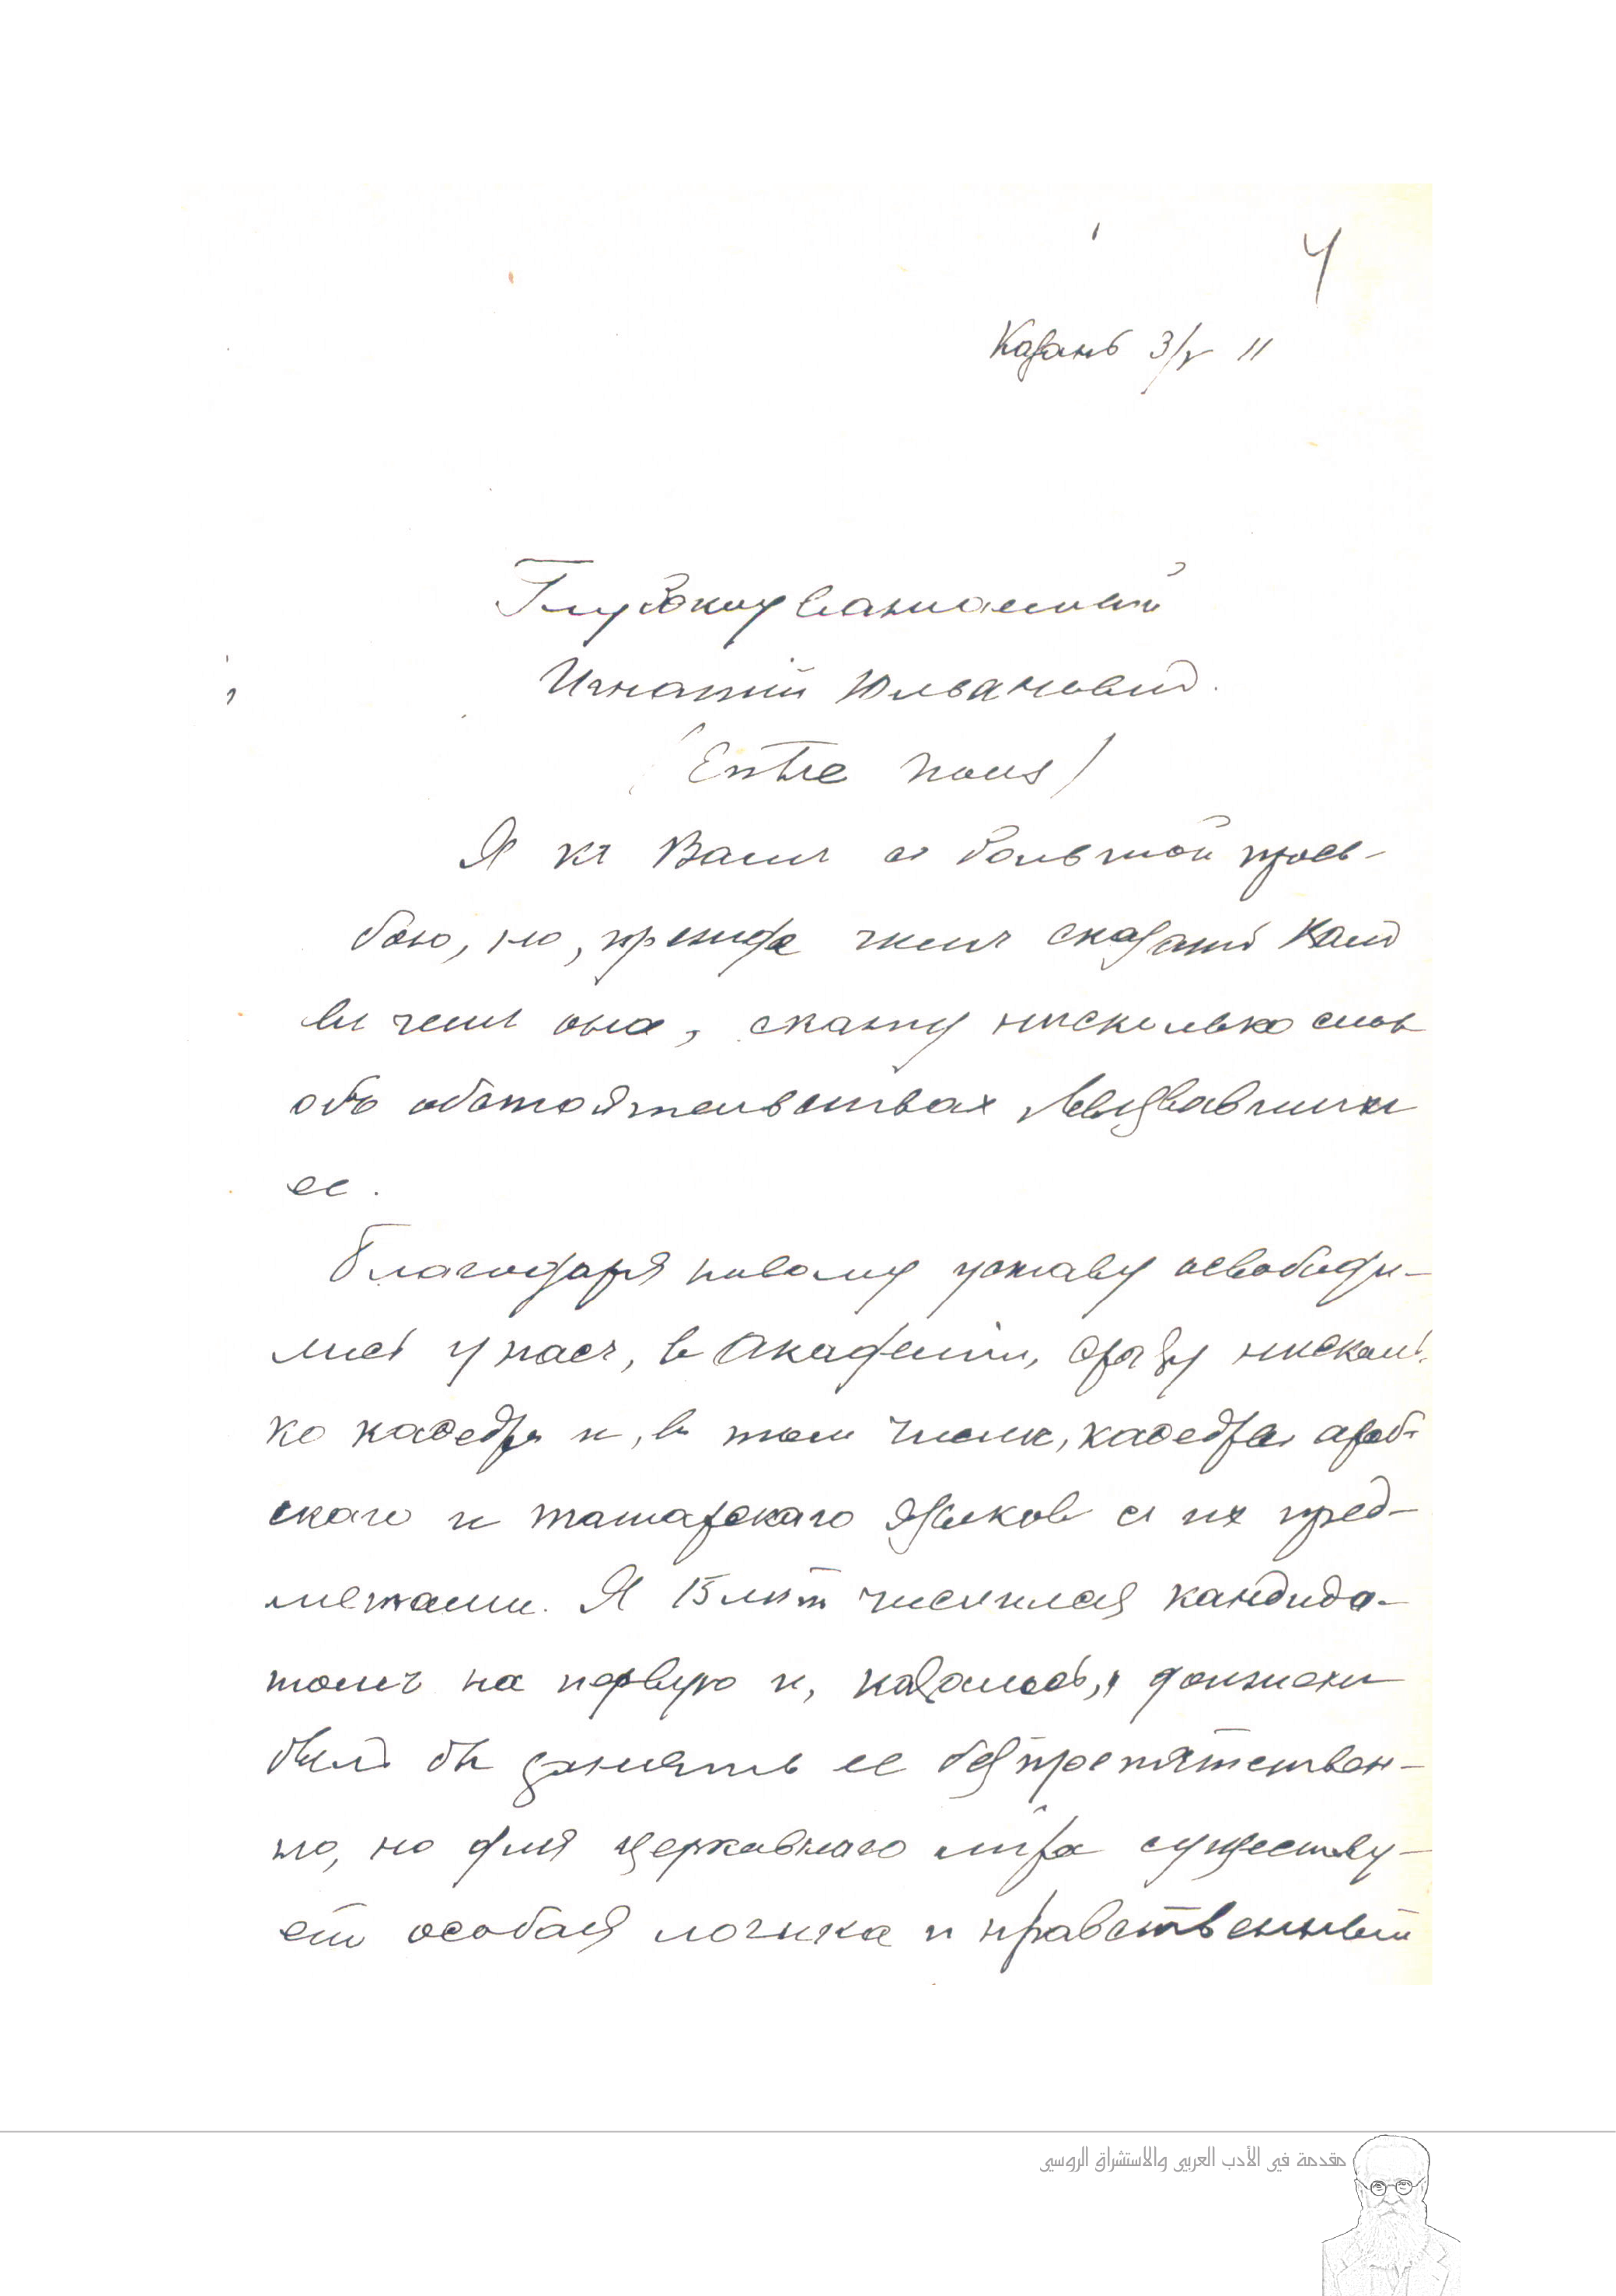 4
Казань 3/V 11
Глубокоуважаемый
Игнатий Юльанович.
(Entre nous)
Я къ Вамъ с большой прось-
бою, но, прежде чемъ сказать Вам
в чем она, скажу несколько слов
об обстоятельствах вызвавших
ее.
Благодаря новому уставу освободи-
лись у насъ, в Академіи, сразу нѣсколь-
ко каѳедръ и, в том числѣ, каѳедра араб-
скаго и татарскаго языков с их пред-
метами. Я 15 лѣт числился кандида-
томъ на первую и, казалось, должен
был бы занять ее безпрепятствен-
но, но для церковнаго міра существу-
ет особая логика и нравственный
مقدمة في الأدب العربي والاستشراق الروسي